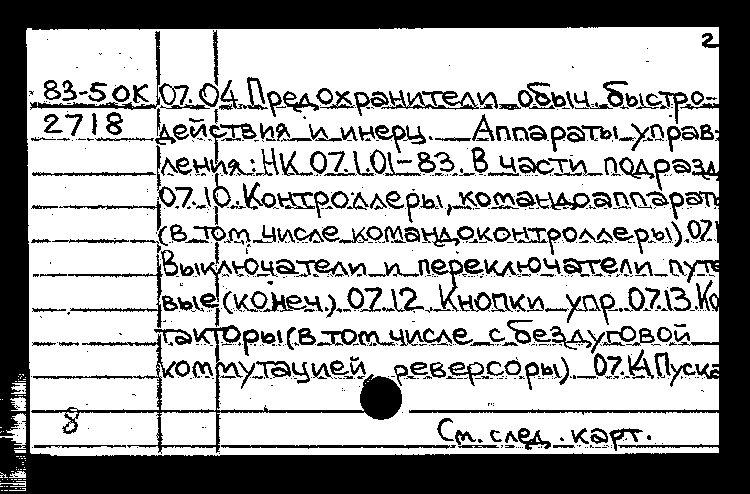 2
83-5 ОК 07.04. Предохранители обыч. быстро-
2718 действия и инерц. Аппараты управ-
ления: НК 07.1.01-83. В части подразд
07.10. Контроллеры, командоаппараты
(в том числе командоконтроллеры) 07.1
Выключатели и переключатели путе
вые (конеч.) 07.12 Кнопки упр. 07.13. Ко
такторы (в том числе с бездуговой
коммутацией, реверсоры) 07.14 Пуска
8
См. след. карт.